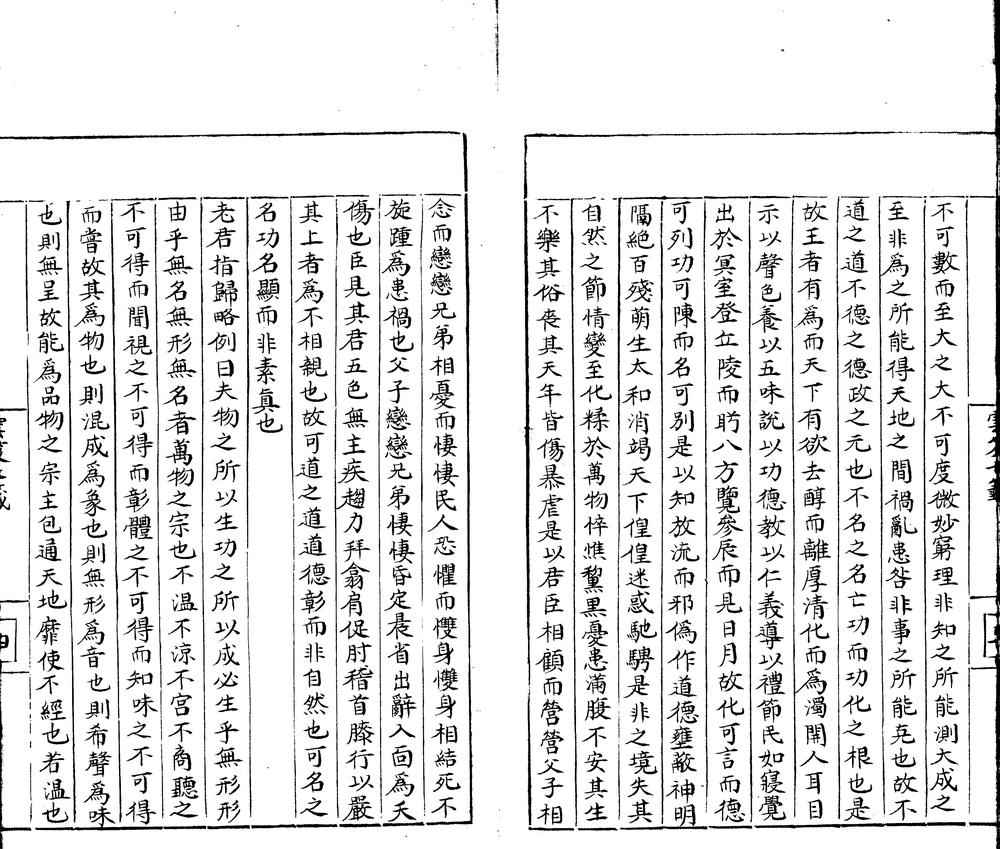 不可數而至大之大不可度微妙窮理非知之所能測大成之
至非為之所能得天地之間禍亂患咎非事之所能克也故不
道之道不德之德政之元也不名之名亡功而功化之根也是
故王者有為而天下有欲去醇而離厚清化而為濁開人耳目
示以聲色養以五味說以功德教以仁義導以禮節民如寢覺
出於冥室登立陵而盻八方覽參辰而見日月故化可言而德
可列功可陳而名可別是以知放流而邪偽作道德壅蔽神明
隔絕百殘萌生太和消竭天下偟偟迷惑馳騁是非之境失其
自然之節情變至化糅於萬物悴憔黧黑憂患滿腹不安其生
不樂其俗喪其天年皆傷暴虐是以君臣相顧而營營父子相
念而戀戀兄弟相憂而悽悽民人恐懼而慢身慢身相結死不
旋踵為患禍也父子戀戀兄弟悽悽昏定晨省出辭入面為夭
傷也臣見其君五色無主疾趨力拜翕肩促肘稽首膝行以嚴
其上者為不相親也故可道之道道德彰而非自然也可名之
名功名顯而非素真也
老君指歸略例曰夫物之所以生功之所以成必生乎無形形
由乎無名無形無名者萬物之宗也不温不涼不宫不商聽之
不可得而聞視之不可得而彰體之不可得而知味之不可得
而嘗故其為物也則混成為象也則無形為音也則希聲為味
也則無呈故能為品物之宗主包通天地靡使不經也若温也